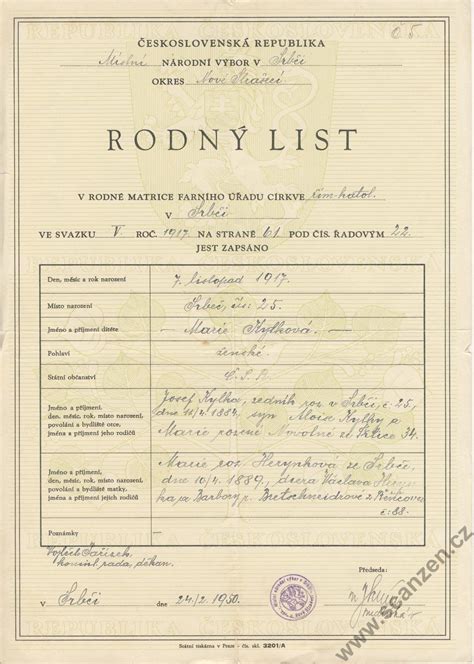 REPUBLIKA ČESKOSLOVENSKÁ
Č 5
ČESKOSLOVENSKÁ REPUBLIKA
Místní NÁRODNÍ VÝBOR v Srbči
OKRES Nové Strašecí
RODNÝ LIST
V RODNÉ MATRICE FARNÍHO ÚŘADU CÍRKVE řím.-katol.
V Srbči
VE SVAZKU V. ROČ. 1917. NA STRANĚ 61 POD ČÍS. ŘADOVÝM 22.
JEST ZAPSÁNO
Den, měsíc a rok narození
7. listopad 1917.
Místo narození
Srbeč, čís: 25.
Jméno a příjmení dítěte
— Marie Kylková. —
Pohlaví
ženské.
Státní občanství
Č.S.R.
Jméno a příjmení,
den, měsíc, rok, místo narození,
povolání a bydliště otce,
jméno a příjmení jeho rodičů
Josef Kylka, zedník roz. v Srbči, č. 25,
dne 16/4. 1884, syn Aloise Kylky a
Marie rozené Novotné ze 34.
Jméno a příjmení,
den, měsíc a rok narození,
povolání a bydliště matky,
jména a příjmení jejích rodičů
Marie roz. ze Srbče,
dne 10/4. 1889, dcera Václava
a Barbory r. Bretschneidrové z
č: 88.
Poznámky
—
Vojtěch
konsist. rada, děkan.
Předseda:
V Srbči dne 24./2. 1950.
Státní tiskárna v Praze - čís. skl. 3201/A
www.scanzen.cz